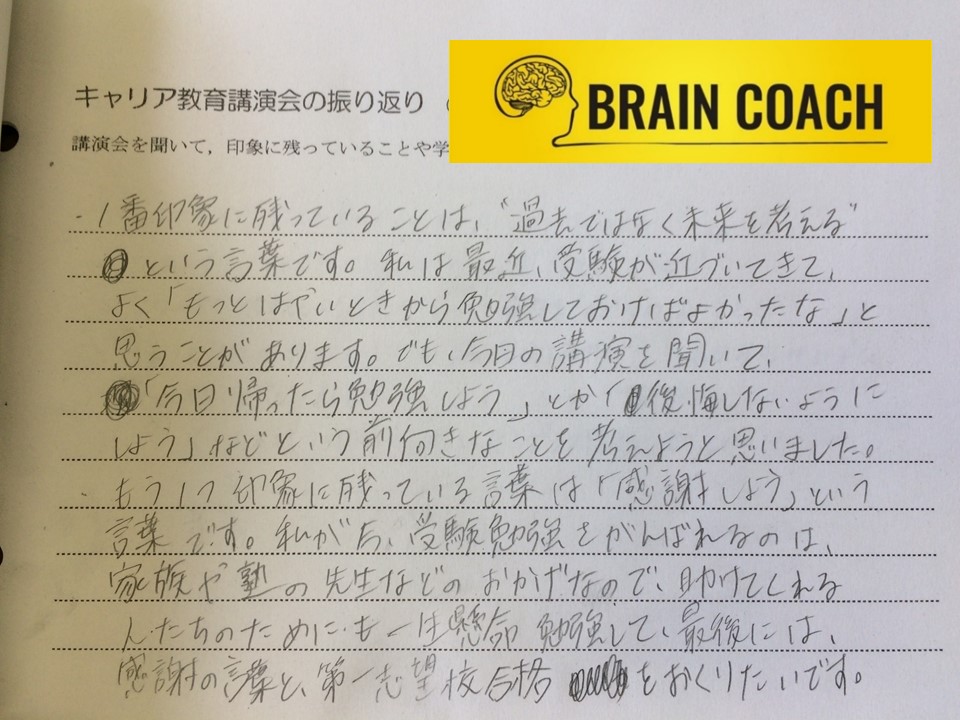 キャリア教育講演会の振り返り
BRAIN COACH
講演会を聞いて,印象に残っていることや学
・1番印象に残っていることは、“過去ではなく未来を考える”
という言葉です。私は最近、受験が近づいてきて、
よく「もっとはやいときから勉強しておけばよかったな」と
思うことがあります。でも、今日の講演を聞いて、
「今日帰ったら勉強しよう」とか「後悔しないように
しよう」などという前向きなことを考えようと思いました。
・もう1つ印象に残っている言葉は「感謝しよう」という
言葉です。私が今、受験勉強をがんばれるのは、
家族や塾の先生などのおかげなので、助けてくれる
人たちのためにも一生懸命勉強して、最後には、
感謝の言葉と、第一志望校合格をおくりたいです。